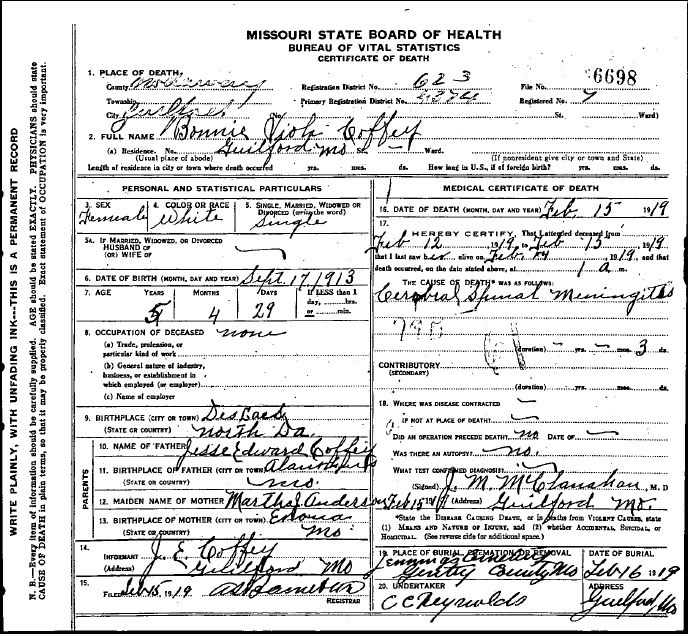 MISSOURI STATE BOARD OF HEALTH
BUREAU OF VITAL STATISTICS
CERTIFICATE OF DEATH
WRITE PLAINLY, WITH UNFADING INK---THIS IS A PERMANENT RECORD
N. B.—Every item of information should be carefully supplied. AGE should be stated EXACTLY. PHYSICIANS should state
CAUSE OF DEATH in plain terms, so that it may be properly classified. Exact statement of OCCUPATION is very important.
1. PLACE OF DEATH,
County Nodaway Registration District No. 623 File No. 6698
Township Primary Registration District No. Registered No. 7
City Guilford No. St. Ward)
2. FULL NAME Bonnie Viola Coffey
(a) Residence. No. Guilford Mo St. Ward.
(Usual place of abode) (If nonresident give city or town and State)
Length of residence in city or town where death occurred yrs. mos. ds. How long in U.S., if of foreign birth? yrs. mos. ds.
PERSONAL AND STATISTICAL PARTICULARS
3. SEX 4. COLOR OR RACE 5. SINGLE, MARRIED, WIDOWED OR
DIVORCED (write the word)
Female White Single
5A. IF MARRIED, WIDOWED, OR DIVORCED
HUSBAND OF
(OR) WIFE OF
6. DATE OF BIRTH (MONTH, DAY AND YEAR) Sept. 17, 1913
7. AGE YEARS MONTHS DAYS If LESS than 1
day, hrs.
or min.
5 4 29
8. OCCUPATION OF DECEASED none
(a) Trade, profession, or
particular kind of work
(b) General nature of industry,
business, or establishment in
which employed (or employer)
(c) Name of employer
9. BIRTHPLACE (CITY OR TOWN) Des
(STATE OR COUNTRY) North Da.
PARENTS
10. NAME OF FATHER Jesse Edward Coffey
11. BIRTHPLACE OF FATHER (CITY OR TOWN)
(STATE OR COUNTRY) Mo.
12. MAIDEN NAME OF MOTHER Martha Anderson
13. BIRTHPLACE OF MOTHER (CITY OR TOWN)
(STATE OR COUNTRY) Mo.
14.
INFORMANT J. E. Coffey
(Address) Guilford Mo
15.
FILED Feb 15, 1919
REGISTRAR
MEDICAL CERTIFICATE OF DEATH
16. DATE OF DEATH (MONTH, DAY AND YEAR) Feb. 15 1919
17.
I HEREBY CERTIFY, That I attended deceased from
Feb 12, 1919, to Feb 15, 1919
that I last saw her alive on Feb. 1919, and that
death occurred, on the date stated above, at 1 a m.
THE CAUSE OF DEATH* WAS AS FOLLOWS:
Cerebral Spinal Meningitis
(duration) yrs. mos. 3 ds.
CONTRIBUTORY
(SECONDARY)
(duration) yrs. mos. ds.
18. WHERE WAS DISEASE CONTRACTED
IF NOT AT PLACE OF DEATH?
DID AN OPERATION PRECEDE DEATH? no DATE OF
WAS THERE AN AUTOPSY? no.
WHAT TEST CONFIRMED DIAGNOSIS?
(Signed) J. M. McClanahan, M. D
Feb 15, 19 (Address) Guilford Mo.
*State the DISEASE CAUSING DEATH, or in deaths from VIOLENT CAUSES, state
(1) MEANS AND NATURE OF INJURY, and (2) whether ACCIDENTAL, SUICIDAL, or
HOMICIDAL. (See reverse side for additional space.)
19. PLACE OF BURIAL, CREMATION OR REMOVAL DATE OF BURIAL
Gentry County Mo Feb 16 1919
20. UNDERTAKER ADDRESS
C C Reynolds Guilford, Mo